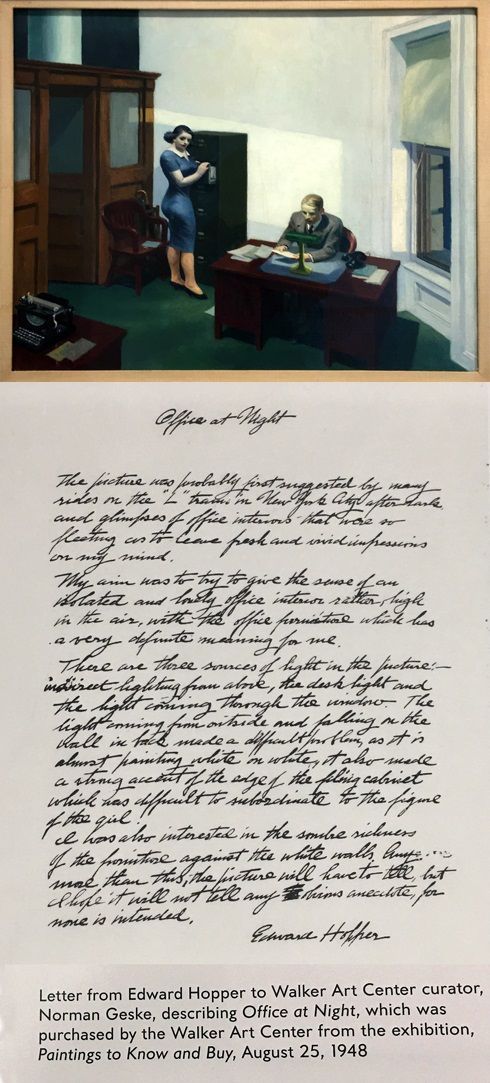 Office at Night
The picture was probably first suggested by many
rides on the "L" train in New York City after dark
and glimpses of office interiors that were so
fleeting as to leave fresh and vivid impressions
on my mind.
My aim was to try to give the sense of an
isolated and lonely office interior rather high
in the air, with the office furniture which has
a very definite meaning for me.
There are three sources of light in the picture:—
indirect lighting from above, the desk light and
the light coming through the window. The
light coming from outside and falling on the
wall in back made a difficult problem, as it is
almost painting white on white, it also made
a strong accent of the edge of the filing cabinet
which was difficult to subordinate to the figure
of the girl.
I was also interested in the sombre richness
of the furniture against the white walls. Any
more than this, the picture will have to tell, but
I hope it will not tell any obvious anecdote, for
none is intended.
Edward Hopper
Letter from Edward Hopper to Walker Art Center curator,
Norman Geske, describing Office at Night, which was
purchased by the Walker Art Center from the exhibition,
Paintings to Know and Buy, August 25, 1948